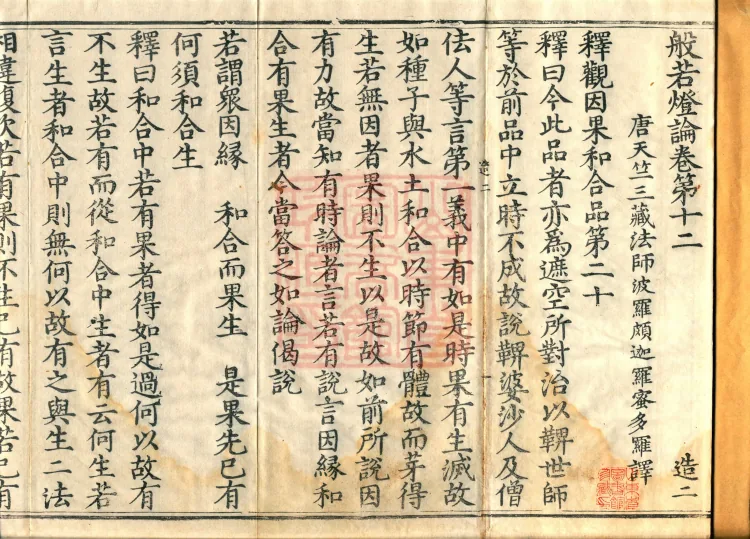 般若燈論卷第十二 造二
唐天竺三藏法師波羅頗迦羅蜜多羅譯
釋觀因果和合品第二十
釋曰今此品者亦為遮空所對治以鞞世師
等於前品中立時不成故說鞞婆沙人及僧
佉人等言第一義中有如是時果有生滅故
造二
如種子與水土和合以時節有體故而芽得
生若無因者果則不生以是故如前所說因
有力故當知有時論者言若有說言因緣和
合有果生者今當答之如論偈說
若謂眾因緣 和合而果生 是果先已有
何須和合生
釋曰和合中若有果者得如是過何以故有
不生故若有而從和合中生者有云何生若
言生者和合中則無何以故有之與生二法
相違復次若有果則不生已有故果若已有